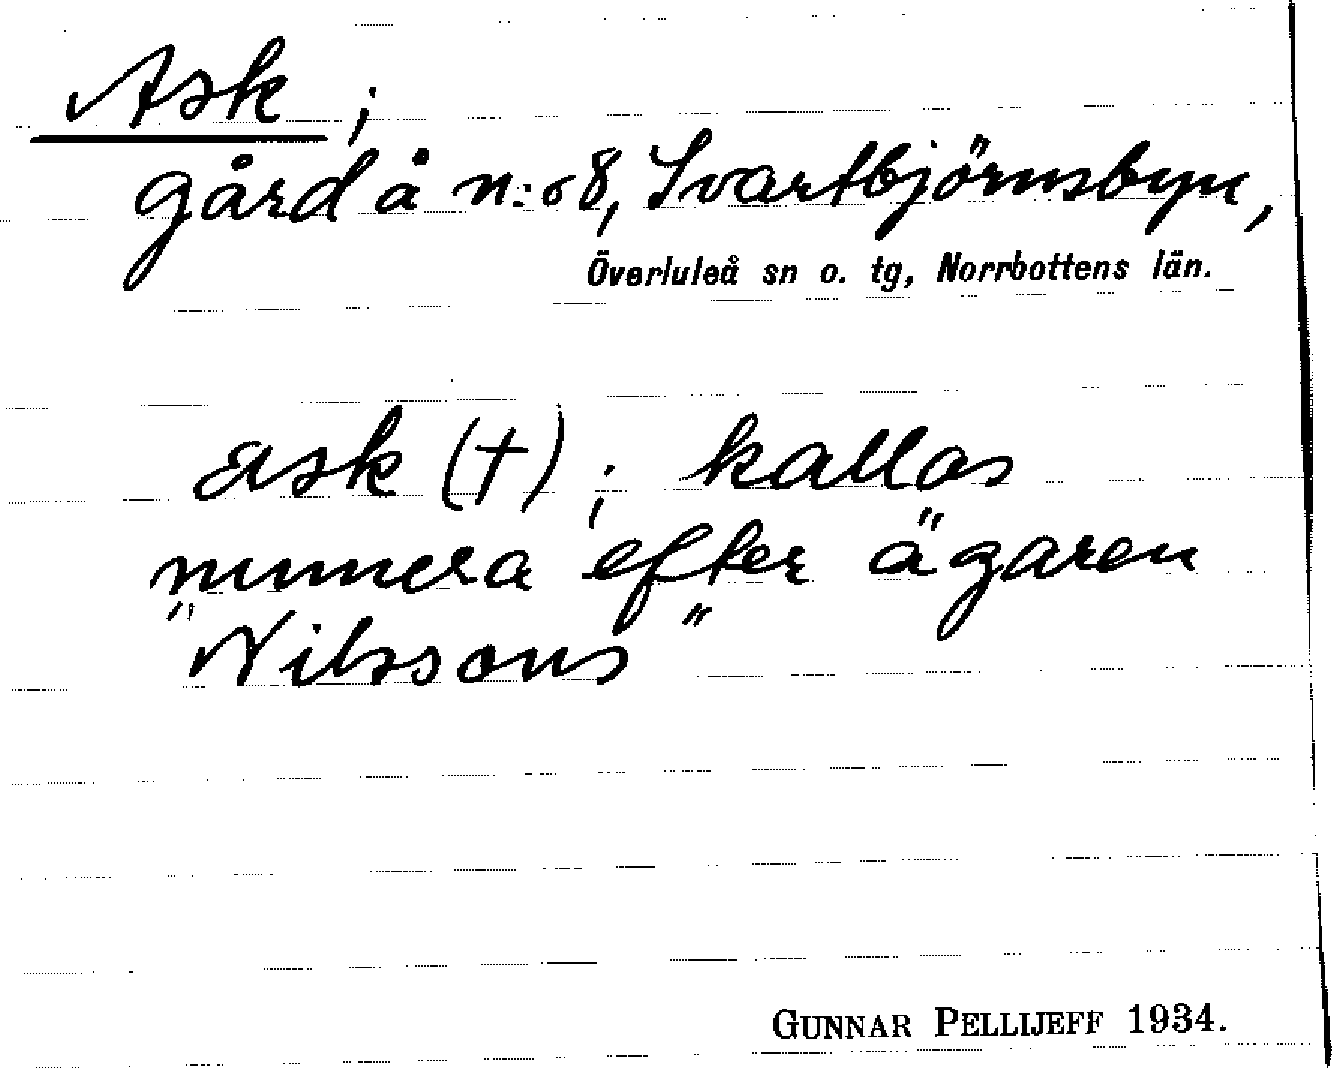 Ask ;
gård å n:o 8, Svartbjörnsbyn,
Överluleå sn o. tg, Norrbottens län.
ask (†) ; kallas
numera efter ägaren
"Nilssons"
GUNNAR PELLIJEFF 1934.